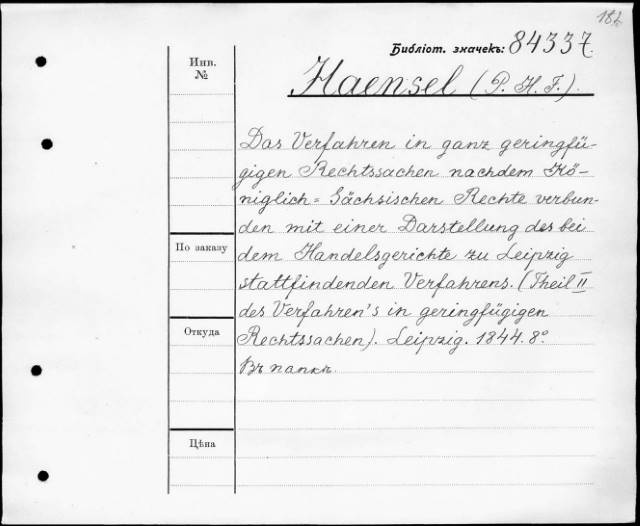 182
Библіот. значекъ: 84337.
Haensel (P. H. F.).
Инв.
№
Das Verfahren in ganz geringfü-
gigen Rechtssachen nachdem Kö-
niglich=Sächsischen Rechte verbun-
den mit einer Darstellung des bei
По заказу
dem Handelsgerichte zu Leipzig
stattfindenden Verfahrens. (Theil II
des Verfahren's in geringfügigen
Откуда
Rechtssachen). Leipzig. 1844. 8°.
Въ папкѣ.
Цѣна